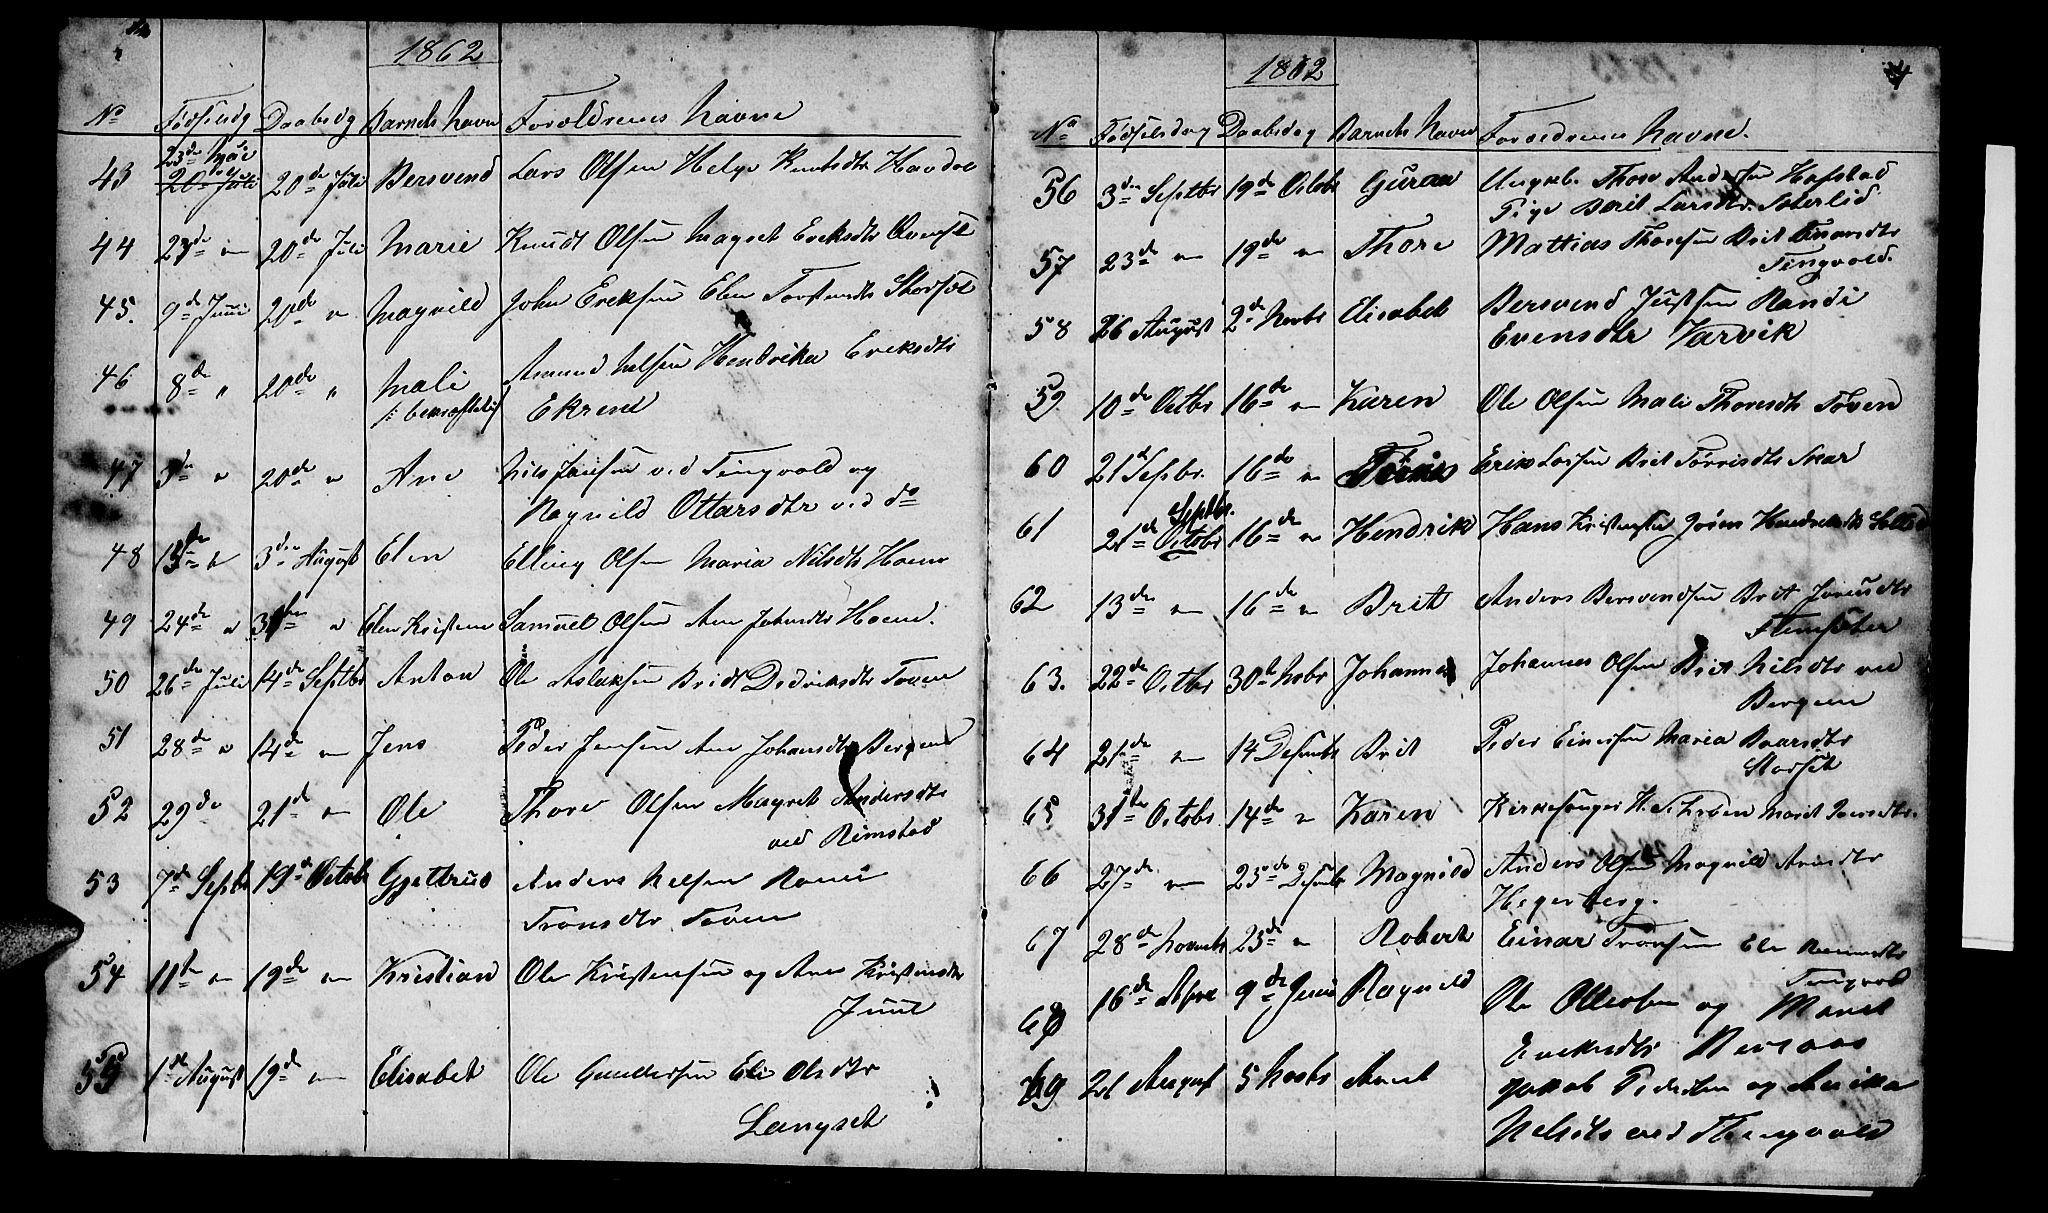 1862
No Fødselsdg Daabsdg Barnets Navn Forældrenes Navne
23de Mai
43 20de Juli 20de Juli Bersvend Lars Olsen Helge Knutsdtr
44 23de " 20de Juli Marie Knudt Olsen Magret Eriksdtr
45. 9de Juni 20de " Magnild John Eriksen Elen Torstensdtr Storset
46 8de " 20de " Mali Amund Nilsen Hendrika Eriksdtr
Ekrene
47 3de " 20de " Ane Nils Jensen ved Tingvold og
Ragnild Ottarsdtr ved do
48 13de " 3die August Elen Elling Olsen Maria Nilsdtr Hoem
49 24de " 31 " Elen Kristene Samuel Olsen Ane Johnsdtr Hoem.
50 26de Juli 14de Septbr Anton Ole Aslaksen Bridt Dedriksdtr Toven
51 28de " 14de " Jens Peder Jensen Ane Johansdtr Bergem
52 29de 21de " Ole Thore Olsen Magret Andersdtr
ved Rimstad
53 7de Septbr 19de Octobr Gjettrud Anders Nelsen
Tronsdtr Toven
54 11te " 19de " Kristian Ole Kristensen og Ane Kristensdtr
Juul
55 1ste August 19de " Elisabet Ole Gundersen Eli Olsdtr
Langset
4
1862
No Fødselsdag Daabsdag Barnets Navn Forældrenes Navne.
56 3die Septbr 19de Octobr Guraa Ungkl. Thore Andersen Hafstad
Pige Berit Larsdtr.
57 23de " 19de " Thore Mattias Thoresen Brit
Tingvold.
58 26 August 2de Novbr Elisabet Bersvend Justsen Randi
Evensdtr Varvik
59 10de Octbr 16de " Karen Ole Olsen Mali Thoresdtr Toven
60 21de Sepbr. 16de " Erik Larsen Brit
Septbr.
61 21de Octobr 16de " Hendrik Hans Kristensen Jören Hendriksdtr
62 13de " 16de " Brit Anders Bersvendsen Brit
Flemsæter
63. 22de Octbr 30te Nobr Johannes Johannes Olsen Brit Nilsdtr ved
Bergem
64 21de " 14 Desembr Brit Peder Einersen Maria Baarsdtr
Storset
65 31te Octobr 14de " Karen Kirkesanger H. Marit
66 27de " 25de Desembr Magnild Anders Olsen Magnild Arnsdtr
Hegerberg.
67 28de Novembr 25de " Robert Einar Tronsen Eli
Tingvold
68 16de Apr 9de Juni Ragnild Ole Ottersen og Marit
Eriksdtr
69 21 August 5 Novbr Jakob Pedersen og
Nelsdtr ved Thingvold